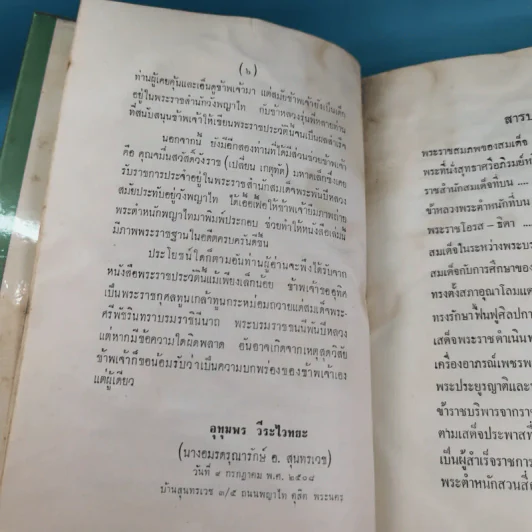 (๖)
ท่านผู้เคยคุ้นและเอ็นดูข้าพเจ้ามา แต่สมัยข้าพเจ้ายังเป็นเด็ก
อยู่ในพระราชสำนักวังพญาไท กับข้าหลวงรุ่นพี่หลายท่าน
ที่สนับสนุนข้าพเจ้าให้เขียนพระราชประวัติจนเป็นผลสำเร็จ
นอกจากนี้ ยังมีอีกสองท่านที่ได้มีส่วนช่วยข้าพเจ้า
คือ คุณจมื่นสวัสดิ์วังราช (เปลี่ยน เกตุทัต) มหาดเล็กซึ่งเคย
รับราชการประจำอยู่ในพระราชสำนักสมเด็จพระพันปีหลวง
สมัยประทับอยู่วังพญาไท ได้เอื้อเฟื้อให้ข้าพเจ้ายืมภาพถ่าย
พระตำหนักพญาไทมาพิมพ์ประกอบ ช่วยทำให้หนังสือเล่มนี้
มีภาพพระราชฐานในอดีตครบครันดีขึ้น
ประโยชน์ใดก็ตามอันท่านผู้อ่านจะพึงได้รับจาก
หนังสือพระราชประวัตินี้แม้เพียงเล็กน้อย ข้าพเจ้าขออุทิศ
เป็นพระราชกุศลทูนเกล้าทูนกระหม่อมถวายแด่สมเด็จพระ
ศรีพัชรินทราบรมราชินีนาถ พระบรมราชชนนีพันปีหลวง
แต่หากมีข้อความใดผิดพลาด อันอาจเกิดจากเหตุสุดวิสัย
ข้าพเจ้าก็ขอน้อมรับว่าเป็นความบกพร่องของข้าพเจ้าเอง
แต่ผู้เดียว
อุทุมพร วีระไวทยะ
(นางอมรดรุณารักษ์ อ. สุนทรเวช)
วันที่ ๙ กรกฎาคม พ.ศ. ๒๕๐๘
บ้านสุนทรเวช ๓/๕ ถนนพญาไท ดุสิต พระนคร
สารบ
พระราชสมภพของสมเด็จ
พระที่นั่งสุทธาศรีอภิรมย์
ราชสำนักสมเด็จที่บน
ข้าหลวงพระตำหนักที่บน
พระราชโอรส – ธิดา ....
สมเด็จในระหว่างพระบร
สมเด็จกับการศึกษาของ
ทรงตั้งสภาอุณาโลมแด
ทรงรักษาฟื้นฟูศิลปกา
เสด็จพระราชดำเนินท
เครื่องอาภรณ์เพชรพ
พระประยูรญาติและ
ข้าราชบริพารจากรา
ตามเสด็จประพาสที่
เป็นผู้สำเร็จราชการ
พระตำหนักสวนสี่